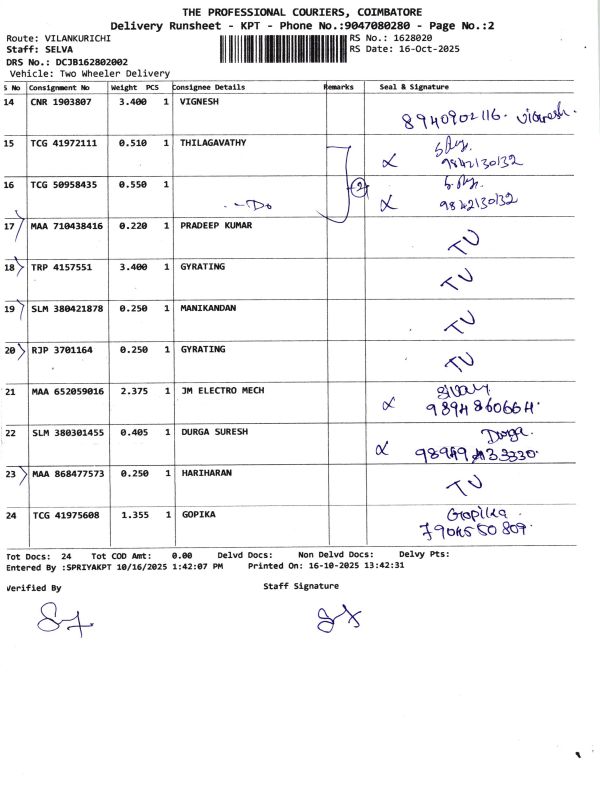 THE PROFESSIONAL COURIERS, COIMBATORE
Delivery Runsheet - KPT - Phone No.:9047080280 - Page No.:2
Route: VILANKURICHI RS No.: 1628020
Staff: SELVA RS Date: 16-Oct-2025
DRS No.: DCJB162802002
Vehicle: Two Wheeler Delivery
S No Consignment No Weight PCS Consignee Details Remarks Seal & Signature
14 CNR 1903807 3.400 1 VIGNESH 8940902116. Vignesh.
15 TCG 41972111 0.510 1 THILAGAVATHY 9842130132
16 TCG 50958435 0.550 1 -Do 2 9842130132
17 MAA 710438416 0.220 1 PRADEEP KUMAR TU
18 TRP 4157551 3.400 1 GYRATING TU
19 SLM 380421878 0.250 1 MANIKANDAN TU
20 RJP 3701164 0.250 1 GYRATING TU
21 MAA 652059016 2.375 1 JM ELECTRO MECH 9894860664.
22 SLM 380301455 0.405 1 DURGA SURESH Durga.
23 MAA 868477573 0.250 1 HARIHARAN TU
24 TCG 41975608 1.355 1 GOPIKA Gopika.
Tot Docs: 24 Tot COD Amt: 0.00 Delvd Docs: Non Delvd Docs: Delvy Pts:
Entered By :SPRIYAKPT 10/16/2025 1:42:07 PM Printed On: 16-10-2025 13:42:31
Verified By Staff Signature